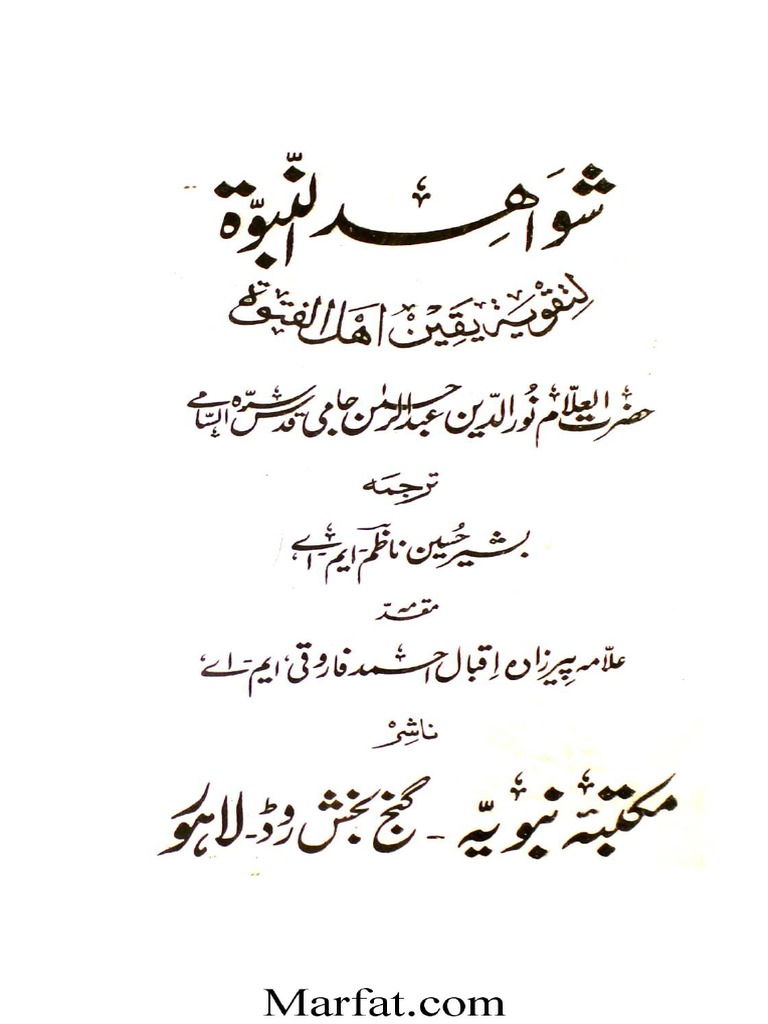 شَوَاهِد النّبوّة
لِتقْوِيَةِ يَقِينِ اَهْلِ الفتوّة
حضرت العلّام نُور الدّین عبد الرحمٰن جامی قدس سرّہ السّامی
ترجمہ
بشیر حُسین ناظم۔ ایم۔ اے
مقدمہ
علّامہ پیرزادہ اقبال احمد فاروقی، ایم۔ اے
ناشِر
مکتبہ نبویّہ ۔ گنج بخش روڈ۔ لاہور
Marfat.com